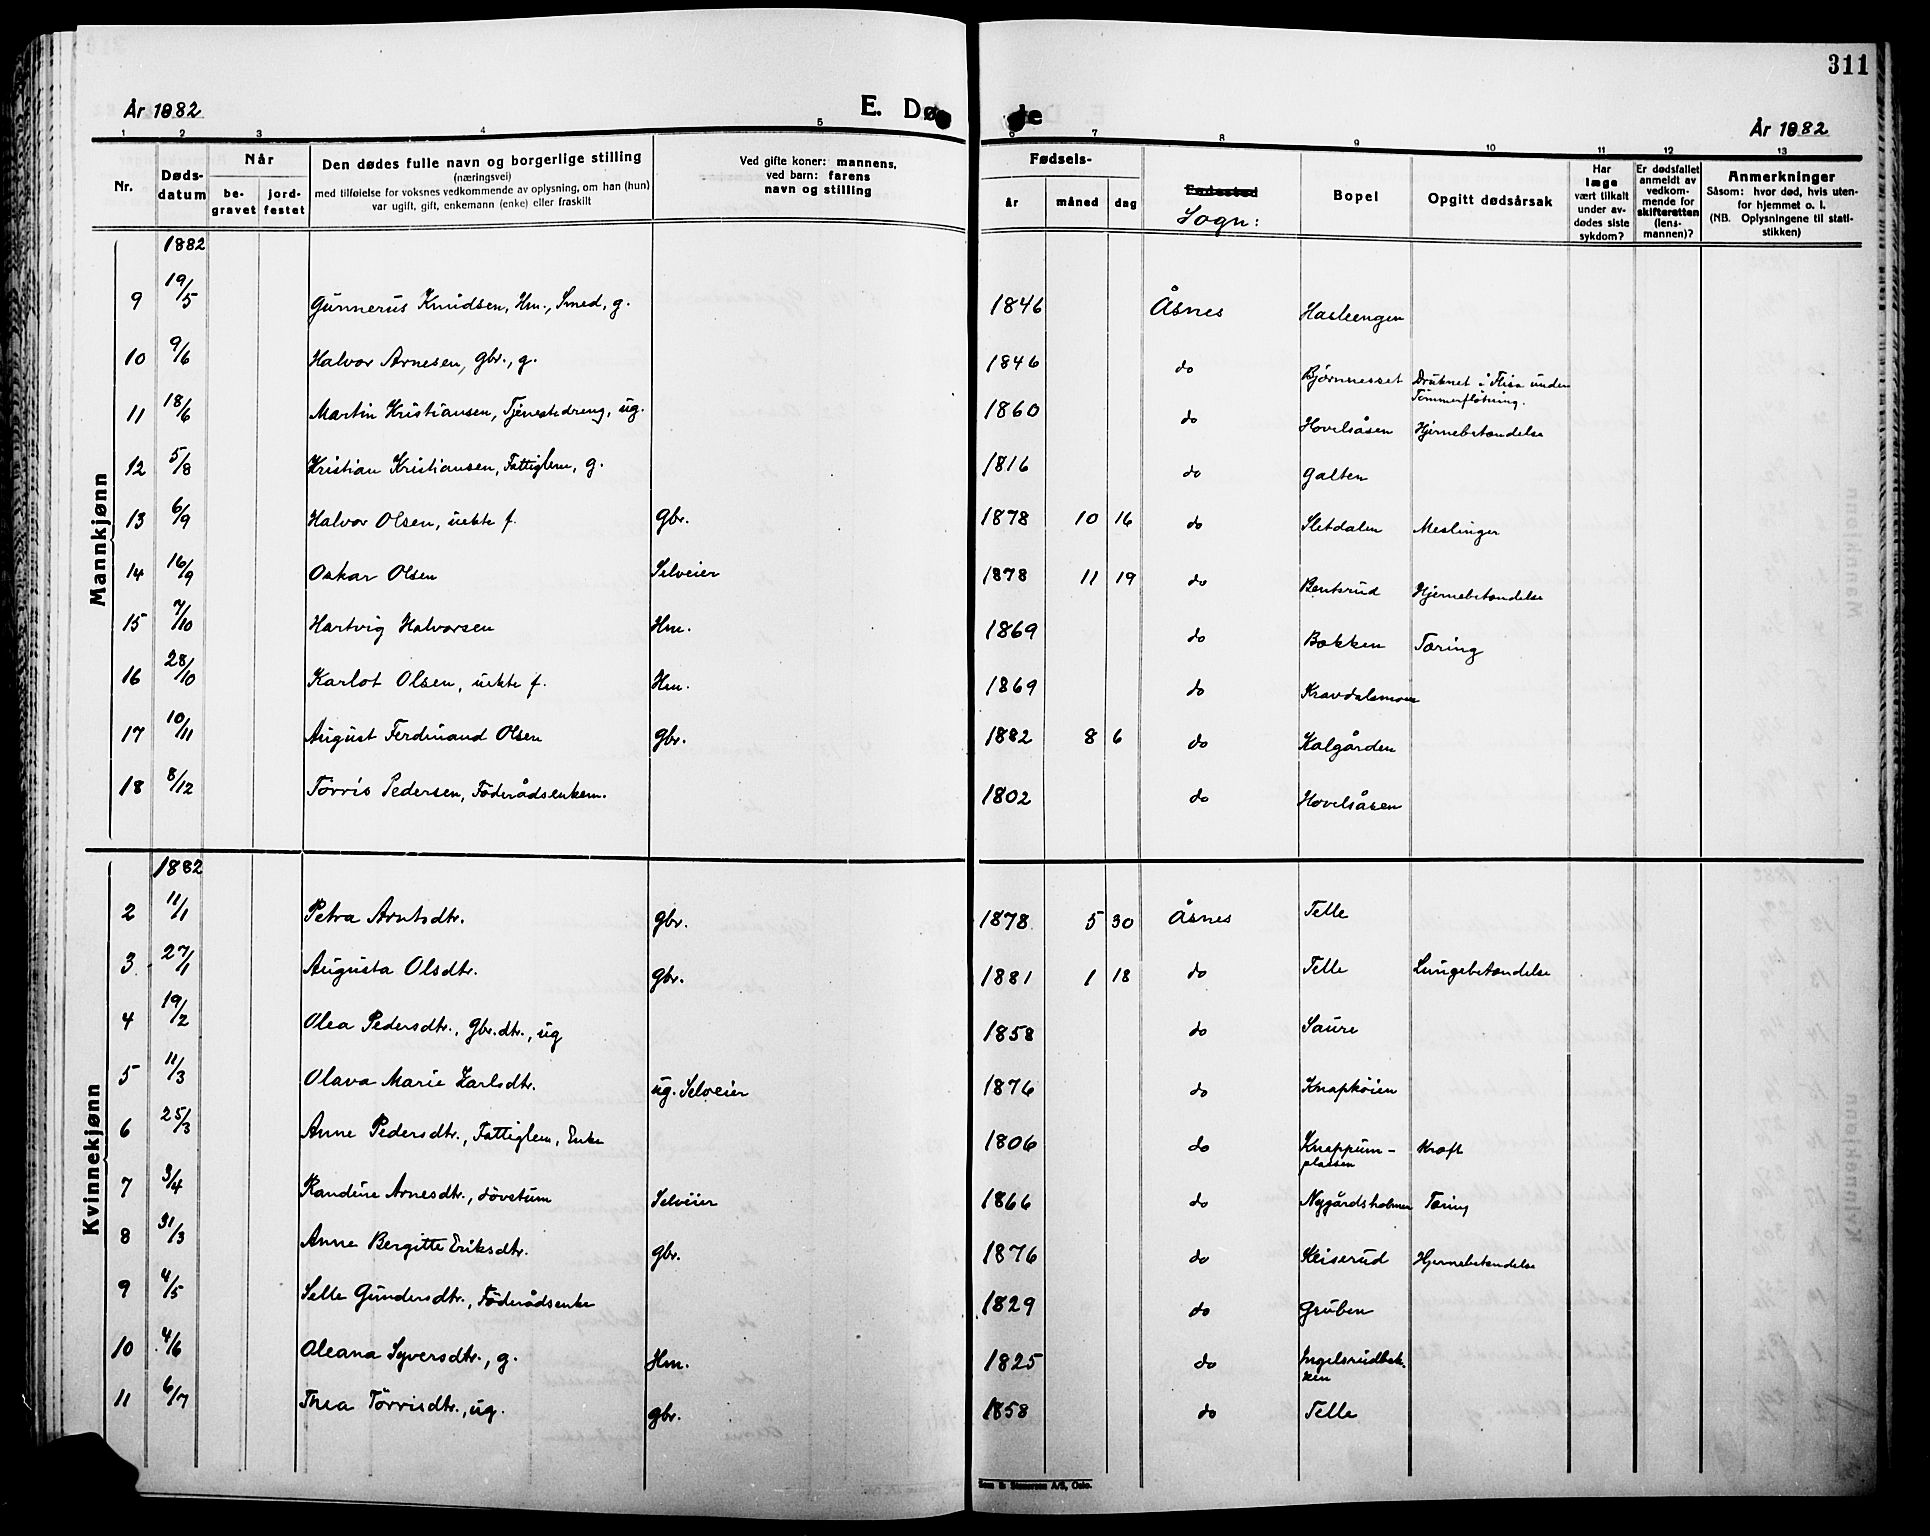 311
År 1882
E. Dø de
År 1882
1 2 3 4 5 6 7 8 9 10 11 12 13
Nr.
Døds-
datum
Når
be-
gravet
jord-
festet
Den dødes fulle navn og borgerlige stilling
(næringsvei)
med tilføielse for voksnes vedkommende av oplysning, om han (hun)
var ugift, gift, enkemann (enke) eller fraskilt
Ved gifte koner: mannens,
ved barn: farens
navn og stilling
Fødsels-
år måned dag
Fødested
Sogn:
Bopel
Opgitt dødsårsak
Har
læge
vært tilkalt
under av-
dødes siste
sykdom?
Er dødsfallet
anmeldt av
vedkom-
mende for
skifteretten
(lens-
mannen)?
Anmerkninger
Såsom: hvor død, hvis uten-
for hjemmet o. l.
(NB. Oplysningene til stati-
stikken)
Mannkjønn
1882
9 19/5 Gunnerus Knudsen, Hm., Smed, g. 1846 Åsnes Hasleengen
10 9/6 Halvor Arnesen, gbr., g. 1846 do Bjørnnesset Druknet i Flisa under
Tømmerfløtning.
11 18/6 Martin Kristiansen, Tjenestedreng, ug. 1860 do Hovelsåsen Hjernebetændelse
12 5/8 Kristian Kristiansen, Fattiglem, g. 1816 do Galten
13 6/9 Halvor Olsen, uekte f. gbr. 1878 10 16 do Sletdalen Meslinger
14 16/9 Oskar Olsen Selveier 1878 11 19 do Bentsrud Hjernebetændelse
15 7/10 Hartvig Halvorsen Hm. 1869 do Bakken Tæring
16 28/10 Karlot Olsen, uekte f. Hm. 1869 do Kravdalsmoen
17 10/11 August Ferdinand Olsen gbr. 1882 8 6 do Kalgården
18 8/12 Törris Pedersen, Föderådsenkem. 1802 do Hovelsåsen
Kvinnekjønn
1882
2 11/1 Petra Arntsdtr. gbr. 1878 5 30 Åsnes Telle
3 27/1 Augusta Olsdtr. gbr. 1881 1 18 do Telle Lungebetændelse
4 19/2 Olea Pedersdtr., Gbr.dtr., ug 1858 do Saure
5 11/3 Olava Marie Karlsdtr. ug. Selveier 1876 do Knapköien
6 25/3 Anne Pedersdtr., Fattiglem, Enke 1806 do Knappum-
plassen Kræft
7 3/4 Randine Arnesdtr., dövstum Selveier 1866 do Nygårdsholmen Tæring
8 31/3 Anne Bergitte Eriksdtr. gbr. 1876 do Keiserud Hjernebetændelse
9 4/5 Selle Gundersdtr., Föderådsenke 1829 do Gruben
10 4/6 Oleana Syversdtr., g. Hm. 1825 do Ingelsrudbak-
ken
11 6/7 Thea Törrisdtr., ug. gbr. 1858 do Telle
Sem & Stenersen A/S, Oslo.